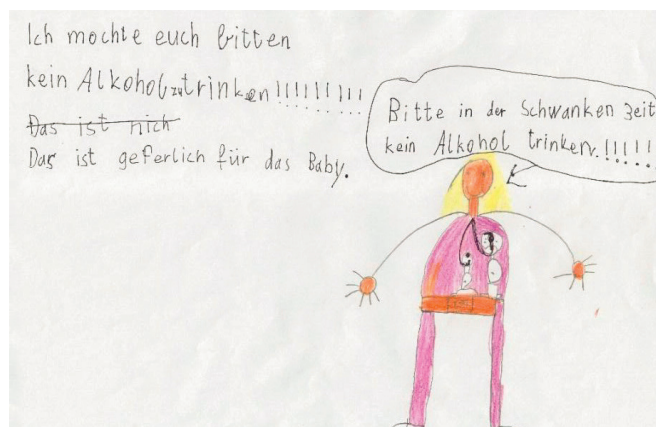 Ich mochte euch bitten
kein Alkohol zu trinken!!!!!!!!!
Das ist nich
Das ist geferlich für das Baby.
Bitte in der Schwanken Zeit
kein Alkohol trinken.!!!!!